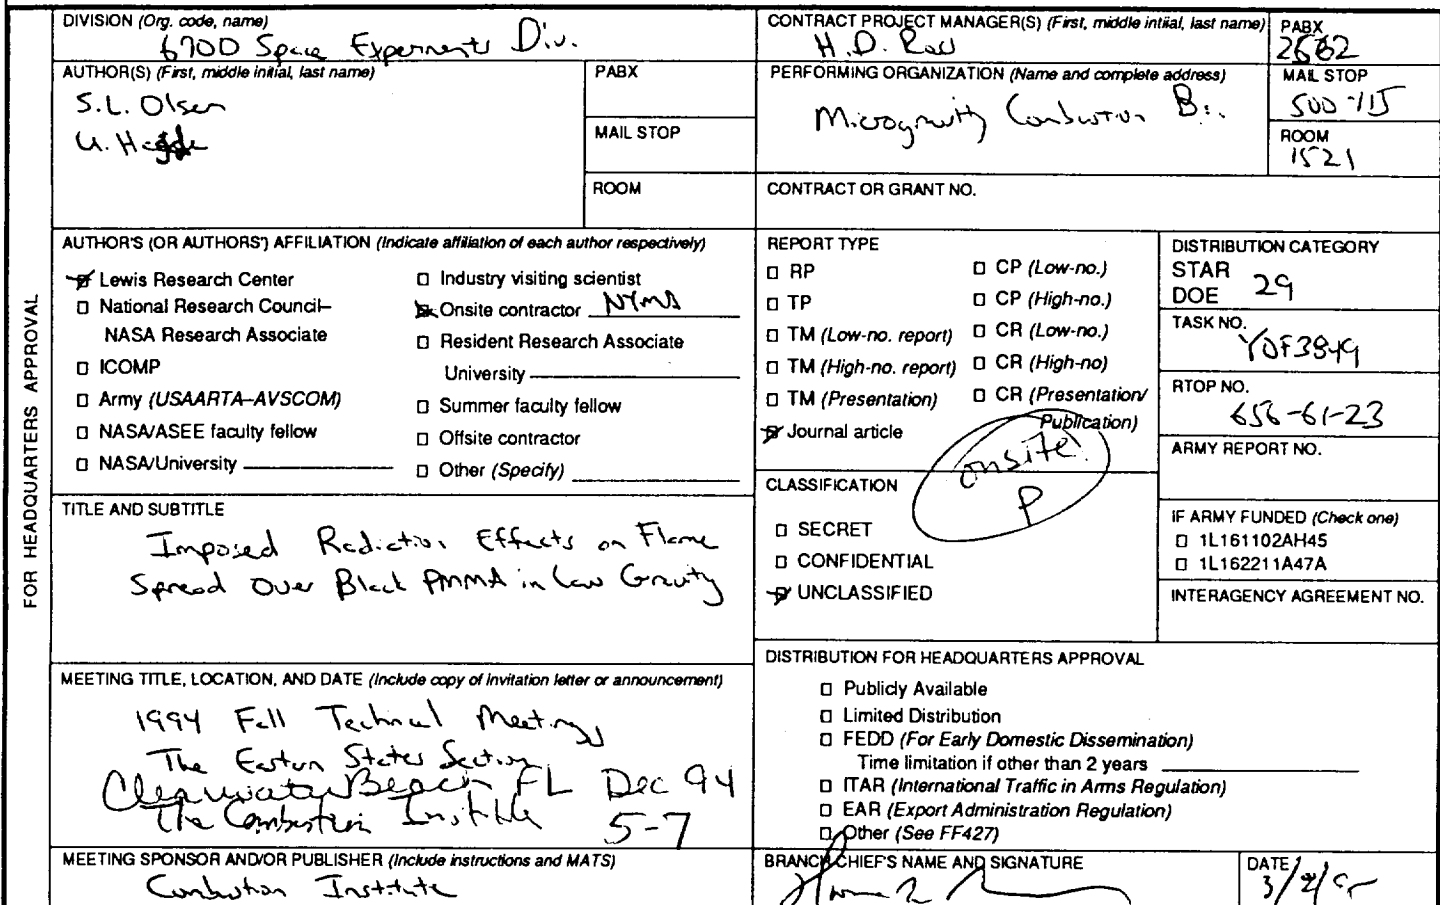 DIVISION (Org. code, name)
6700 Space Experiments Div.
CONTRACT PROJECT MANAGER(S) (First, middle intiial, last name)
H.D. Ross
PABX
2562
AUTHOR(S) (First, middle initial, last name)
S.L. Olsen
U. Hegde
PABX
MAIL STOP
ROOM
PERFORMING ORGANIZATION (Name and complete address)
Microgravity Combustion Br.
MAIL STOP
500-115
ROOM
1521
CONTRACT OR GRANT NO.
FOR HEADQUARTERS APPROVAL
AUTHOR'S (OR AUTHORS') AFFILIATION (Indicate affiliation of each author respectively)
Lewis Research Center
National Research Council–
NASA Research Associate
ICOMP
Army (USAARTA–AVSCOM)
NASA/ASEE faculty fellow
NASA/University
Industry visiting scientist
Onsite contractor NYMA
Resident Research Associate
University
Summer faculty fellow
Offsite contractor
Other (Specify)
REPORT TYPE
RP
TP
TM (Low-no. report)
TM (High-no. report)
TM (Presentation)
Journal article
CP (Low-no.)
CP (High-no.)
CR (Low-no.)
CR (High-no)
CR (Presentation/
Publication)
onsite
P
DISTRIBUTION CATEGORY
STAR
DOE 29
TASK NO.
YOF3849
RTOP NO.
656-61-23
ARMY REPORT NO.
CLASSIFICATION
SECRET
CONFIDENTIAL
UNCLASSIFIED
IF ARMY FUNDED (Check one)
1L161102AH45
1L162211A47A
INTERAGENCY AGREEMENT NO.
TITLE AND SUBTITLE
Imposed Radiation Effects on Flame
Spread Over Black PMMA in Low Gravity
MEETING TITLE, LOCATION, AND DATE (Include copy of invitation letter or announcement)
1994 Fall Technical Meeting
The Eastern States Section
Clearwater Beach FL Dec 94
The Combustion Institute 5-7
DISTRIBUTION FOR HEADQUARTERS APPROVAL
Publicly Available
Limited Distribution
FEDD (For Early Domestic Dissemination)
Time limitation if other than 2 years
ITAR (International Traffic in Arms Regulation)
EAR (Export Administration Regulation)
Other (See FF427)
MEETING SPONSOR AND/OR PUBLISHER (Include instructions and MATS)
Combustion Institute
BRANCH CHIEF'S NAME AND SIGNATURE
DATE
3/2/95